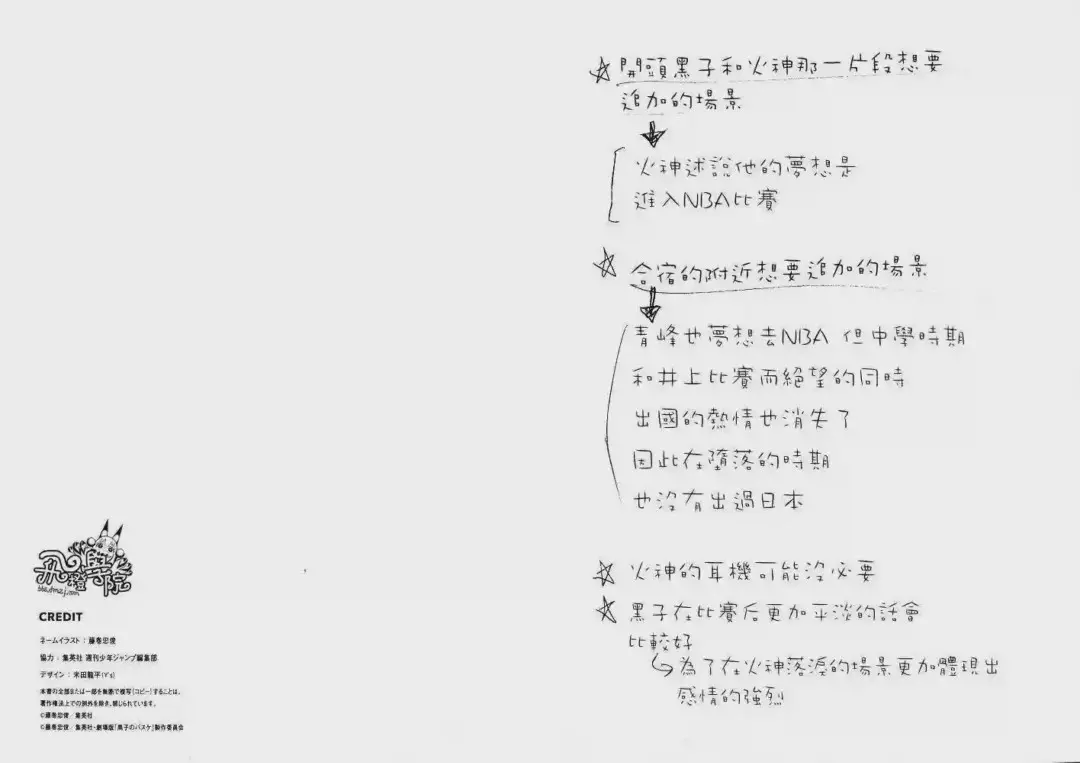 ☆ 開頭黑子和火神那一片段想要
追加的場景
火神述說他的夢想是
進入NBA比賽
☆ 合宿的附近想要追加的場景
青峰也夢想去NBA 但中學時期
和井上比賽而絕望的同時
出國的熱情也消失了
因此在墮落的時期
也沒有出過日本
☆ 火神的耳機可能沒必要
☆ 黑子在比賽后更加平淡的話會
比較好
為了在火神落淚的場景更加體現出
感情的強烈
CREDIT
ネームイラスト：藤巻忠俊
協力：集英社 週刊少年ジャンプ編集部
デザイン：末田龍平(Y's)
本書の全部または一部を無断で複写(コピー)することは、
著作権法上での例外を除き、禁じられています。
©藤巻忠俊／集英社
©藤巻忠俊／集英社・劇場版「黒子のバスケ」製作委員会